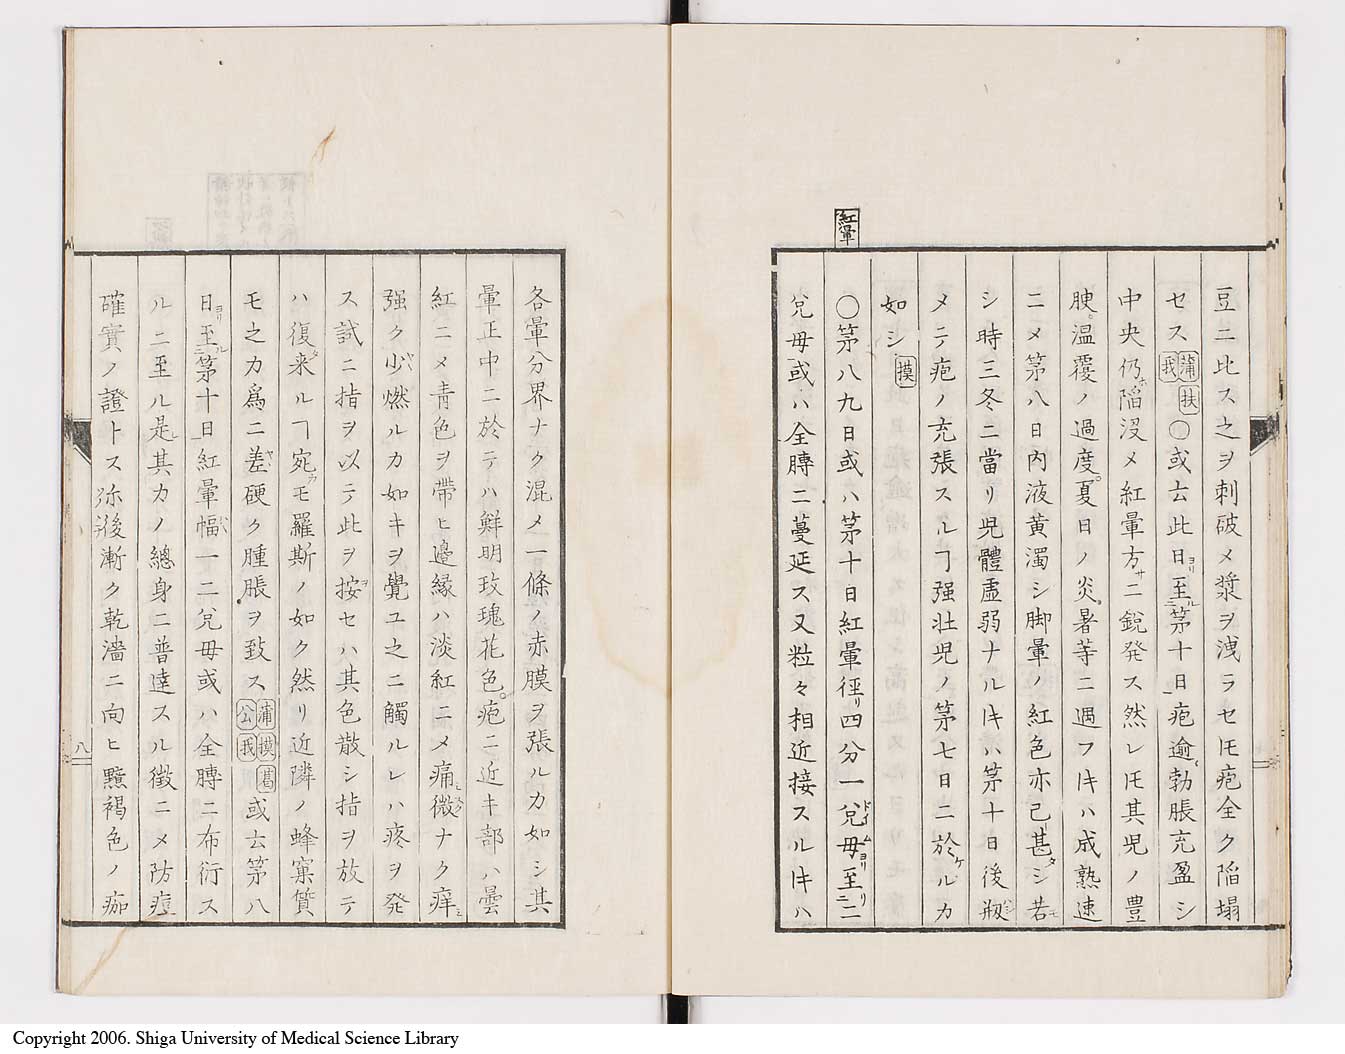 豆ニ比ス之ヲ刺破メ漿ヲ洩ラセㇵ𪜈疱全ク陥塌
セス蒲我扶〇或云此日ヨリ至ル二第十日一疱逾〻勃脹充盈シ
中央仍ホ陥没メ紅暈方サニ鋭発ス然レ𪜈其児ノ豊
腴。温覆ノ過度。夏日ノ炎。暑等ニ遇フ𪜈ハ成熟速
ニメ第八日内液黄濁シ脚暈ノ紅色亦已甚タシ若モ
シ時三冬ニ當リ児體虚弱ナル𪜈ハ第十日後 シ
メテ疱ノ充張スルヿ强壮児ノ第七日ニ於ケルカ
如シ摸
紅暈
〇第八九日或ハ第十日紅暈徑リ四分一兊母ドイムヨリ至リ二
兊母或ハ全膊ニ蔓延ス又粒々相近接スル𪜈ハ
各暈分界ナク混メ一條ノ赤膜ヲ張ルカ如シ其
暈正中ニ於テハ鮮明玫瑰花色。疱ニ近キ部ハ曇
紅ニメ青色ヲ帶ヒ邉縁ハ淡紅ニメ痛微ナク痒
强ク少燃ルカ如キヲ覺ユ之ニ觸ルレハ疼ヲ発
ス試ニ指ヲ以テ此ヲ按セハ其色散シ指ヲ放テ
ハ復タ来ルヿ宛カモ羅斯ノ如ク然リ近隣ノ蜂窠質
モ之カ爲ニ差ヤ硬ク腫脹ヲ致ス蒲公摸我葛或云第八
日ヨリ至ル二第十日一紅暈幅ハ一二兊母或ハ全膊ニ布衍ス
ルニ至ル是レ其カノ總身ニ普達スル徴ニメ防痘
確實ノ證トス弥後漸ク乾濇ニ向ヒ黯褐色ノ痂
八
Copyright 2006. Shiga University of Medical Science Library